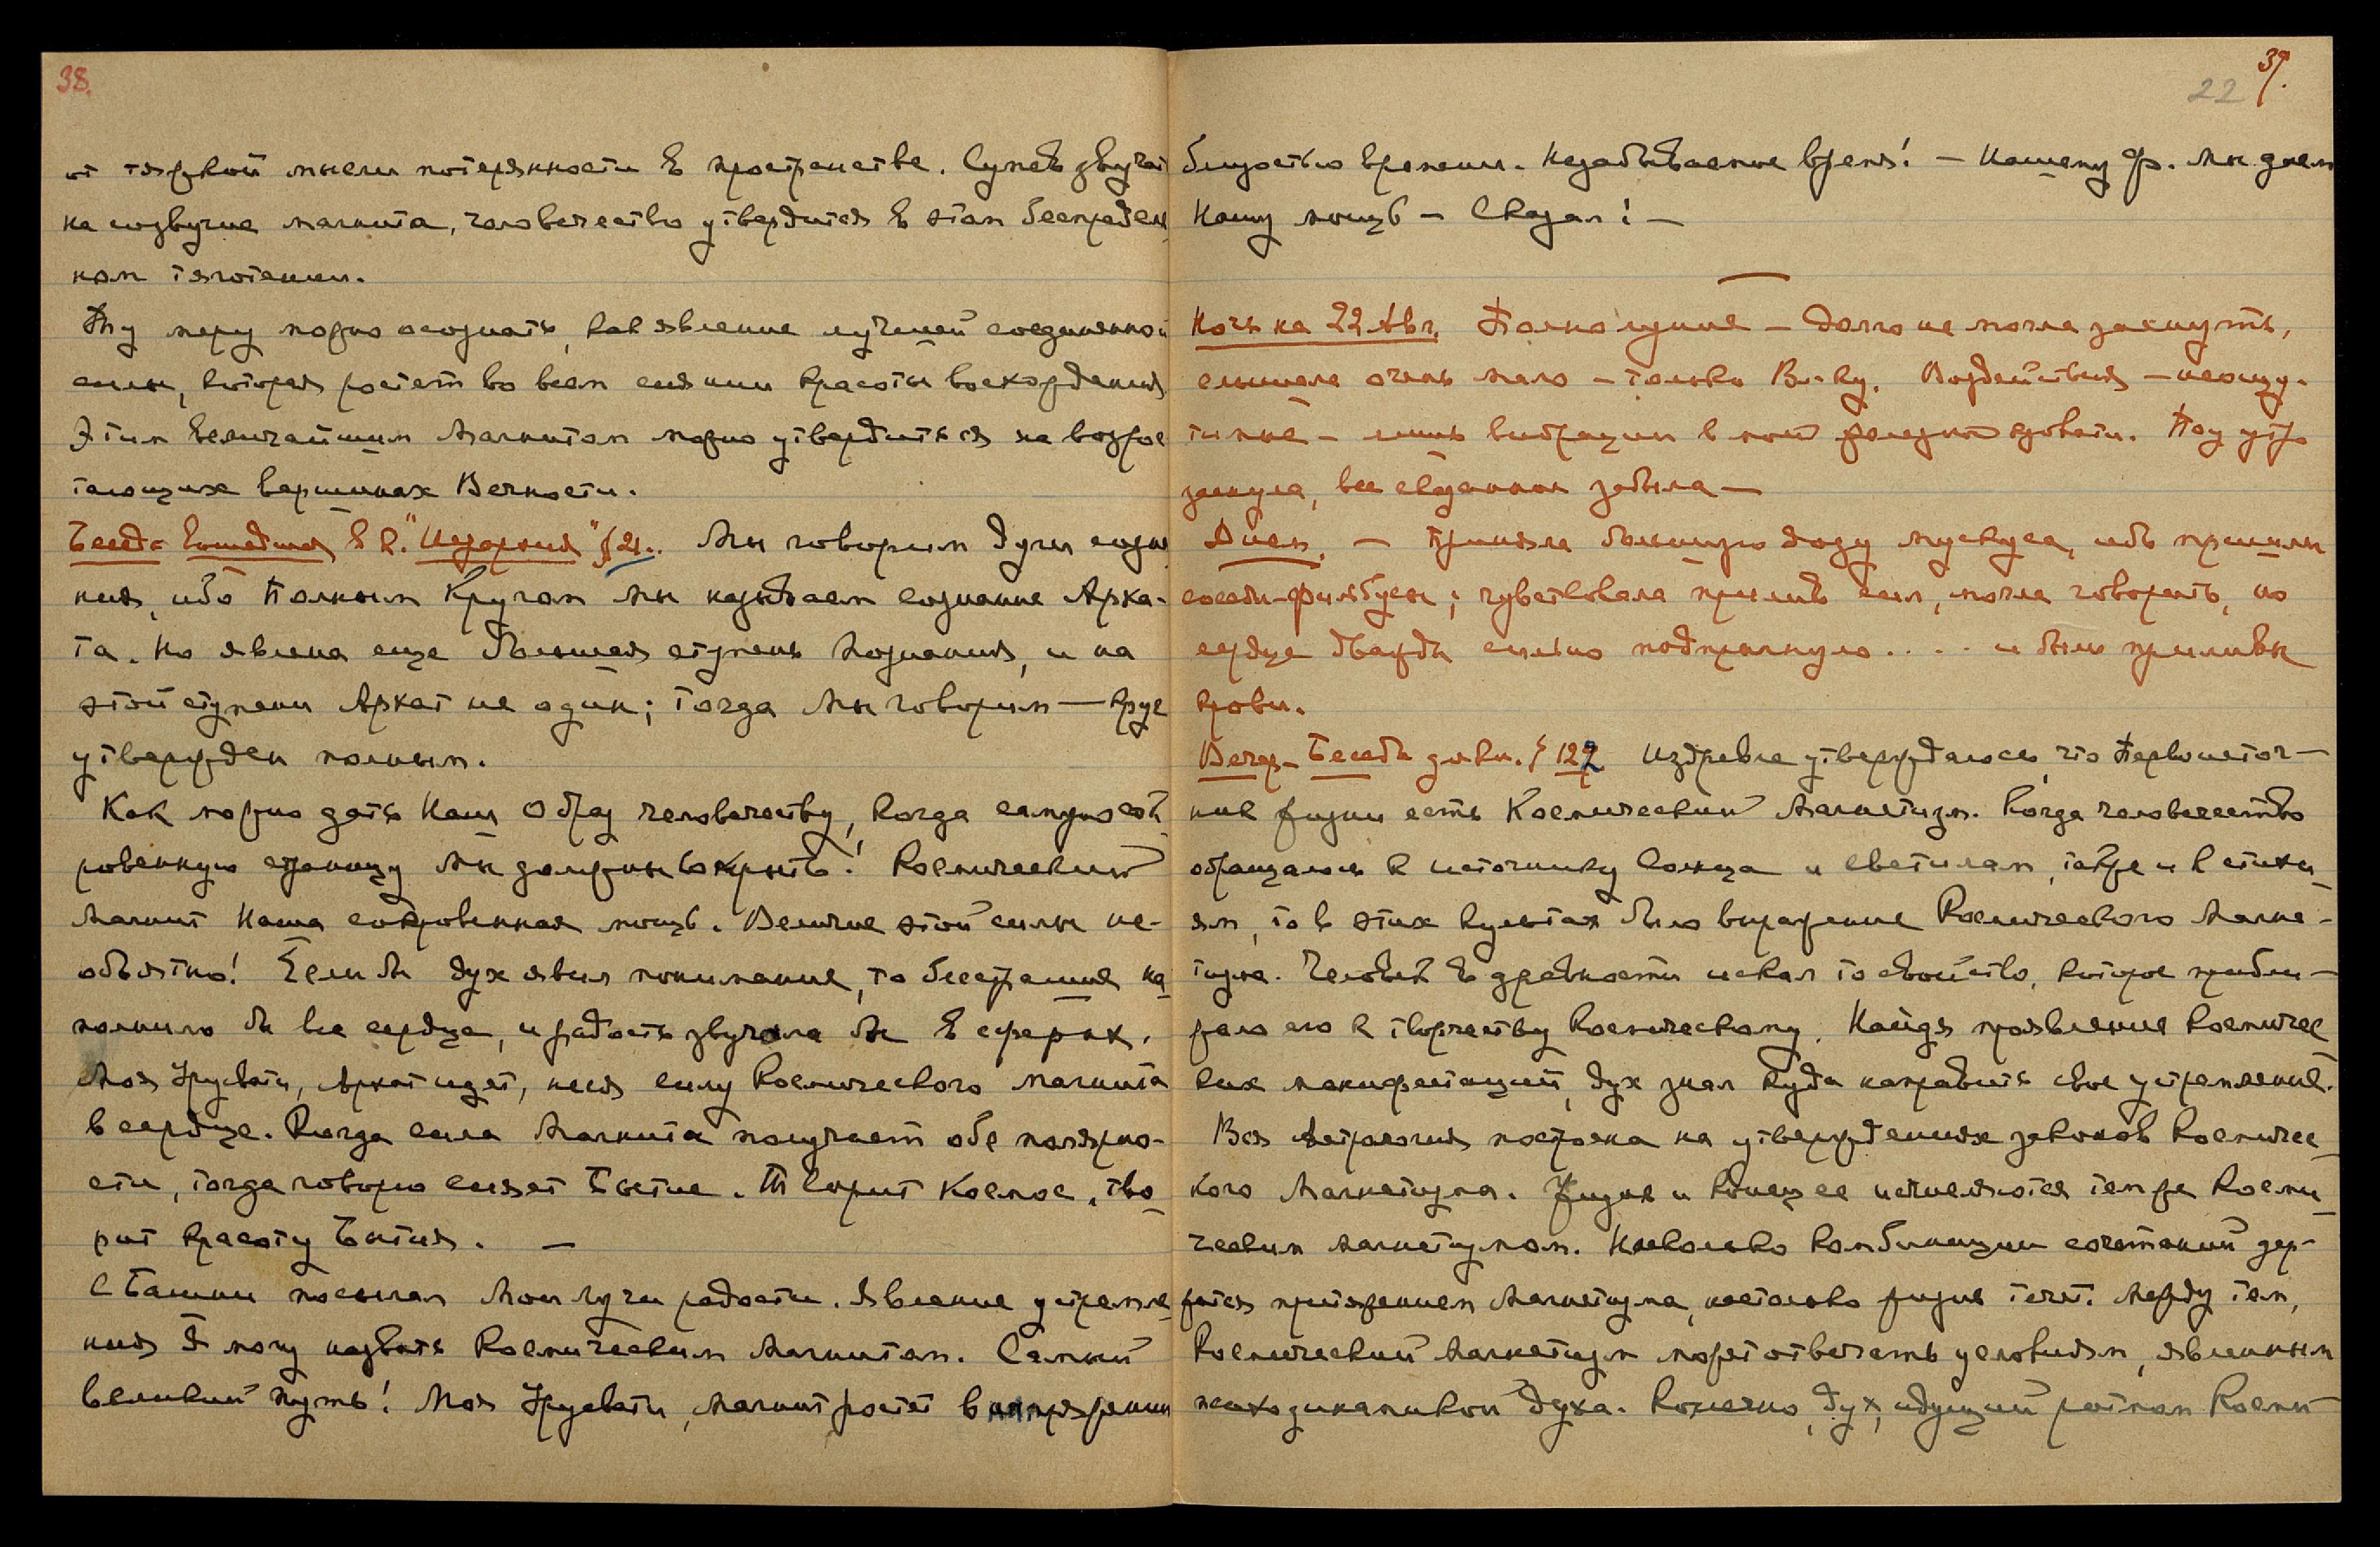 38.
от тяжкой мысли потерянности в пространстве. Сумев звучать
на созвучие магнита, человечество утвердится в этом беспредель
ном тяготении.
Ту меру можно осознать, как явление лучшей соединенной
силы, которая ростет во всем сиянии красоты восхождения.
Этим величайшим Магнитом можно утвердиться на возрос
тающих вершинах Вечности.
Беседа вошедшая в к. "Иерархия" § 21. Мы говорим духу созна
ния, ибо Полным Кругом мы называем сознание Арха-
та. Но явлена еще большая ступень познания, и на
этой ступени Архат не один; тогда Мы говорим — круг
утвержден полным.
Как можно дать Наш Образ человечеству, когда самую сок
ровенную страницу Мы должны вскрыть! Космический
Магнит Наша сокровенная мощь. Величие этой силы не-
объятно! Если бы дух явил понимание, то бесстрашие на
полнило бы все сердце, и радость звучала бы в сферах.
Моя Урусвати, Архат идет, неся силу Космического магнита
в сердце. Когда сила Магнита получает обе полярно-
сти, тогда говорю сияет Бытие. Творит Космос, тво
рит красоту Бытия. —
С Башни посылал Мои лучи радости. Явление устремле
ния Я могу назвать Космическим Магнитом. Самый
великий путь! Моя Урусвати, Магнит ростет в напряжении
22 39.
близостью времени. Незабываемое время! — Нашему Ф. мы даем
Нашу мощь — Сказал! —
Ночь на 22 Авг. Полнолуние — долго не могла заснуть,
слышала очень мало — только В-ку. Воздействия — неощу-
тимые — лишь вибрации в моей железной кровати. Под утро
заснула, все сказанное забыла —
Днем. — Приняла большую дозу мускуса, ибо пришли
соседи-фильбусы; чувствовала прилив сил, могла говорить, но
сердце дважды сильно подпрыгнуло .... и были приливы
крови.
Вечер — Беседы § 122 Издревле утверждалось, что Первоисточ—
ник жизни есть Космический Магнетизм. Когда человечество
обращалось к источнику Солнца и светилам, также и к стихи
ям, то в этих культах было выражение Космического Магне-
тизма. Человек в древности искал то свойство, которое прибли—
жало его к творчеству Космическому. Найдя проявление Космичес
ких манифестаций, дух знал куда направить свое устремление.
Вся Астрология построена на утверждениях законов Космичес
кого Магнетизма. Жизнь и конец ее исчисляются тем же Косми
ческим магнетизмом. Насколько комбинации сочетаний дер-
жатся притяжением Магнетизма, настолько жизнь течет. Между тем,
Космический Магнетизм может отвечать условиям, явленным
психодинамикой духа. Конечно, дух, идущий ритмом Косми